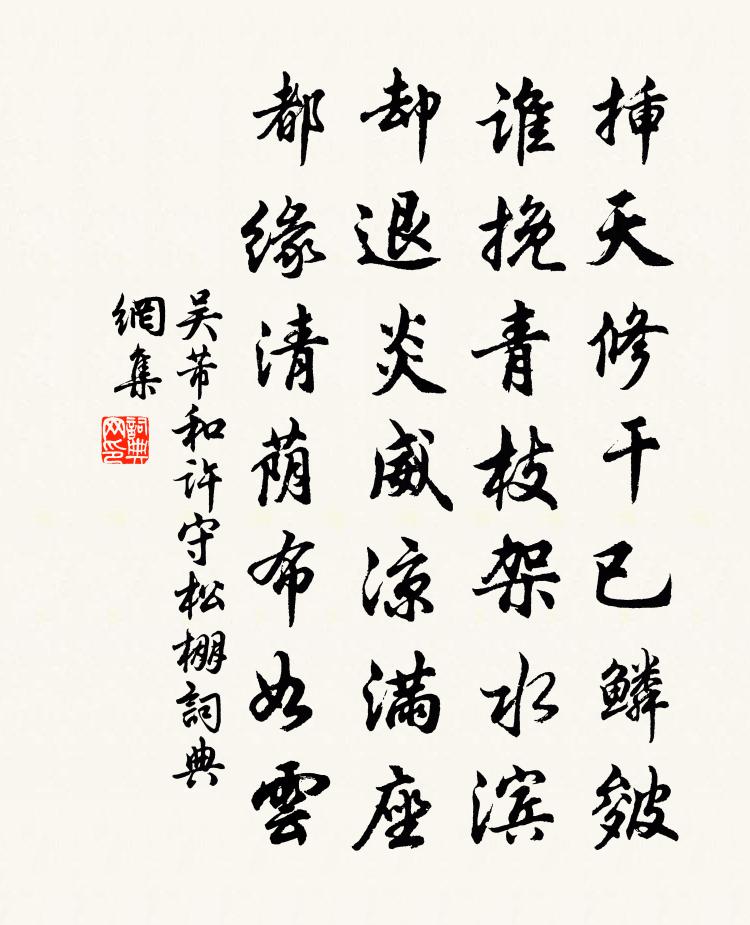 挿天修干已鳞皴
谁挽青枝架水滨
却退炎威凉满座
都缘清荫布如雲
吴芾和许守松棚詞典
網集
詞典
网印